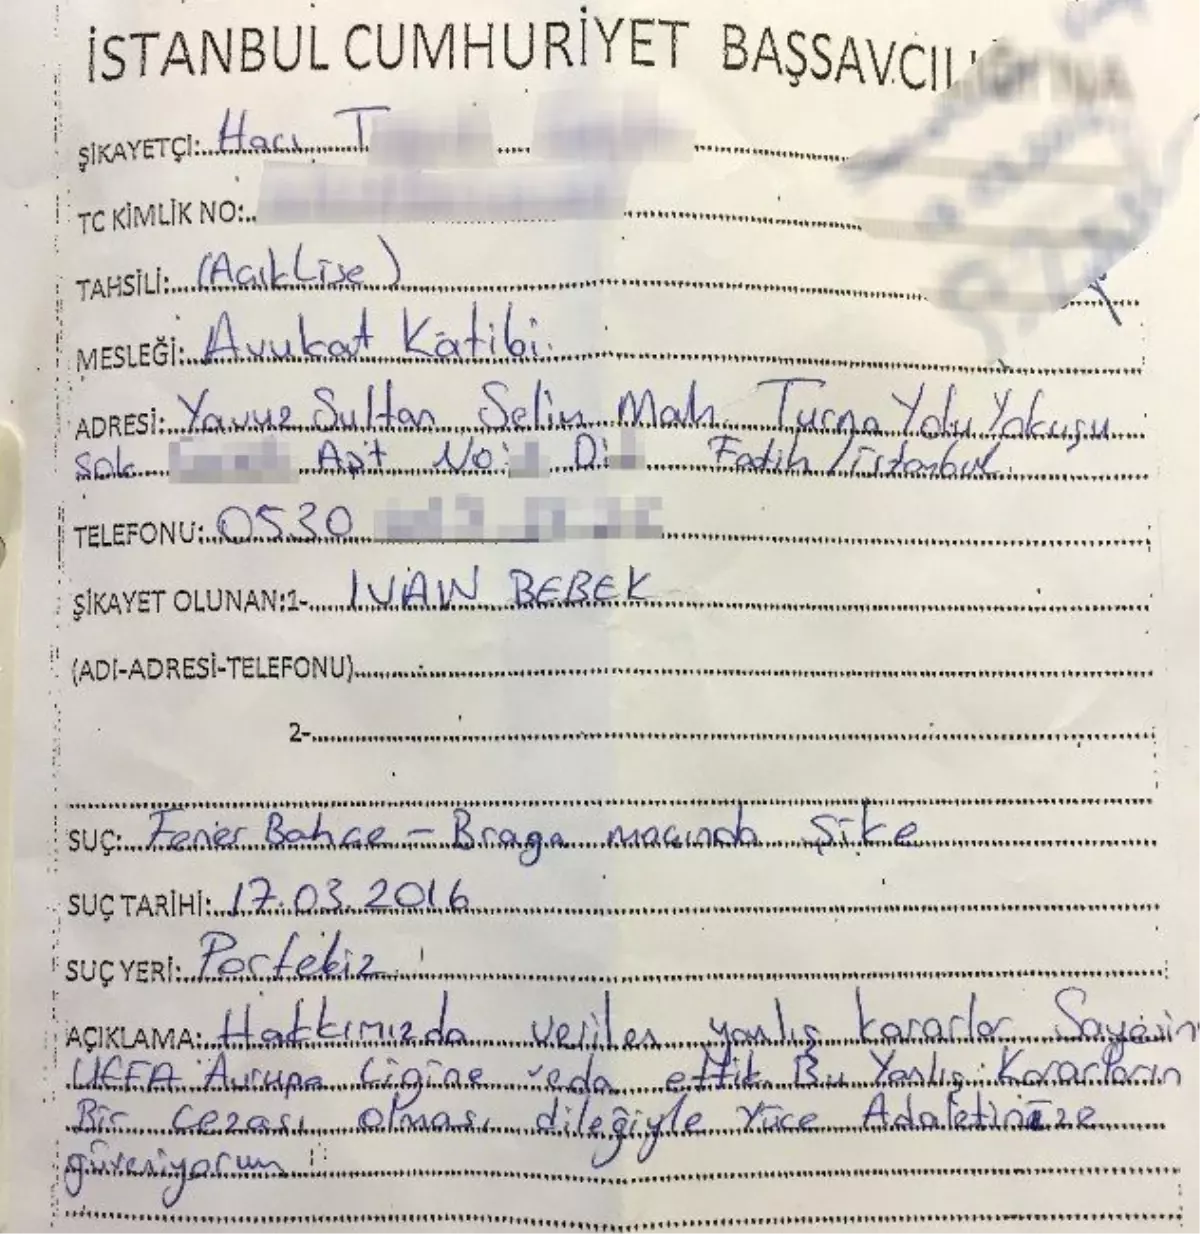 İSTANBUL CUMHURİYET BAŞSAVCILI
ŞİKAYETÇİ: Hacı T
TC KİMLİK NO:
TAHSİLİ: (Açık Lise)
MESLEĞİ: Avukat Katibi
ADRESİ: Yavuz Sultan Selim Mah. Turna Yolu Yokuşu
Sok Apt No: D: Fatih / İstanbul
TELEFONU: 0530
ŞİKAYET OLUNAN:1- IVAN BEBEK
(ADI-ADRESİ-TELEFONU)
2-
SUÇ: Fener Bahçe - Braga maçında Şike
SUÇ TARİHİ: 17.03.2016
SUÇ YERİ: Portekiz
AÇIKLAMA: Hakkımızda verilen yanlış kararlar Sayesin
UEFA Avrupa Ligine veda ettik. Bu Yanlış Kararların
Bir cezası olması dileğiyle Yüce Adaletinize
güveniyorum